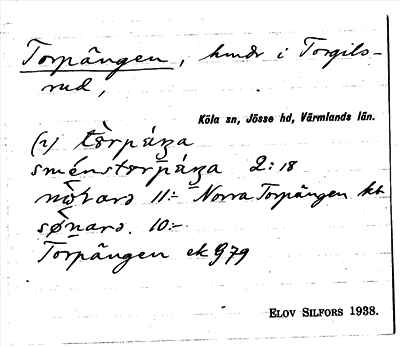 Torpängen, hmdr i Torgils-
rud,
Köla sn, Jösse hd, Värmlands län.
(2) tòrpáŋa
sménstorpáŋa 2:18
nòƚarɔ 11:- Norra Torpängen kt
sønarɔ. 10:-
Torpängen ek G 79
ELOV SILFORS 1938.